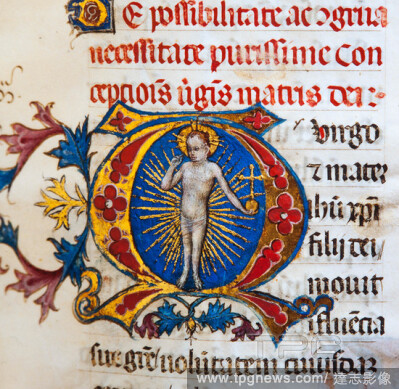 DE possibilitate ac ogrua
necessitate purissime con
ceptiois ugis matris dei
Virgo
⁊ mater
ihu xpi
filij dei
mouit
ifluecia
sue gre nobilitatem
www.tpgnews.com/ 達志影像